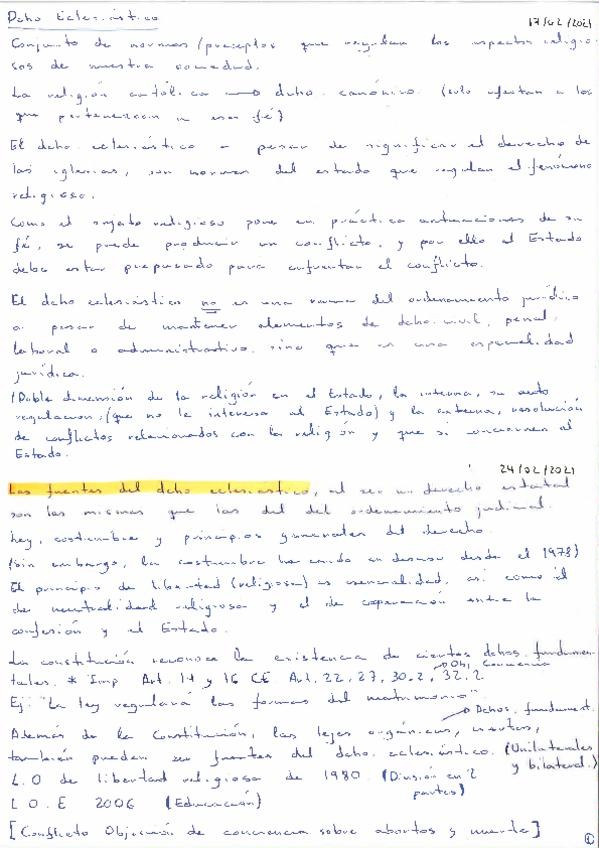 Dcho Eclesiástico
17/02/2021
Conjunto de normas/preceptos que regulan los aspectos religio-
sos de nuestra sociedad.
La religión católica → dcho. canónico. (solo afectan a los
que pertenezcan a esa fé)
El dcho. eclesiástico a pesar de significar el derecho de
las iglesias, son normas del estado que regulan el fenómeno
religioso.
Como el sujeto religioso pone en práctica actuaciones de su
fé, se puede producir un conflicto, y por ello el Estado
debe estar preparado para enfrentar el conflicto.
El dcho eclesiástico no es una rama del ordenamiento jurídico
a pesar de mantener elementos de dcho. civil, penal,
laboral o administrativo, sino que es una especialidad
jurídica.
(Doble dimensión de la religión en el Estado, la interna, su auto
regulación, (que no le interesa al Estado) y la externa, resolución
de conflictos relacionados con la religión y que si conciernen al
Estado.
24/02/2021
Las fuentes del dcho eclesiástico, al ser un derecho estatal
son las mismas que las del del ordenamiento judicial.
ley, costumbre y principios generales del derecho.
(sin embargo, la costumbre ha caído en desuso desde el 1978)
El principio de libertad (religiosa) es esencialidad, así como el
de neutralidad religiosa y el de cooperación entre la
confesión y el Estado.
La constitución reconoce la existencia de ciertos dchos. fundamen-
tales. * Imp Art. 14 y 16 CE Art. 22, 27, 30.2, 32.2
→ Obj. Conciencia
Ej: "La ley regulará las formas del matrimonio"
→ Dchos. fundament.
Además de la Constitución, las leyes orgánicas,
también pueden ser fuentes del dcho. eclesiástico. (Unilaterales
y bilateral.)
L.O de libertad religiosa de 1980. (División en 2
partes)
L.O.E 2006 (Educación)
[Conflicto Objeción de conciencia sobre abortos y muerte]
①